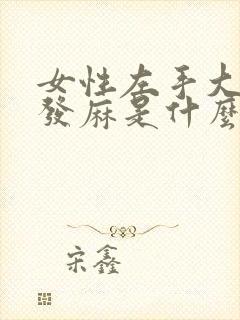 女性左手大
發麻是什麼
宋鑫